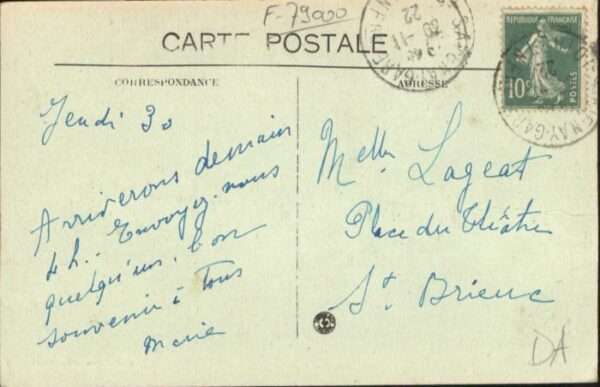 F-79000
CARTE POSTALE
CORRESPONDANCE
ADRESSE
REPUBLIQUE FRANÇAISE
10c
POSTES
Jeudi 30
Arriverons demain
4h. Envoyez-nous
quelqu'un. Bon
souvenir à Tous
Marie
Melle Lageat
Place du Théâtre
St. Brieuc
DA